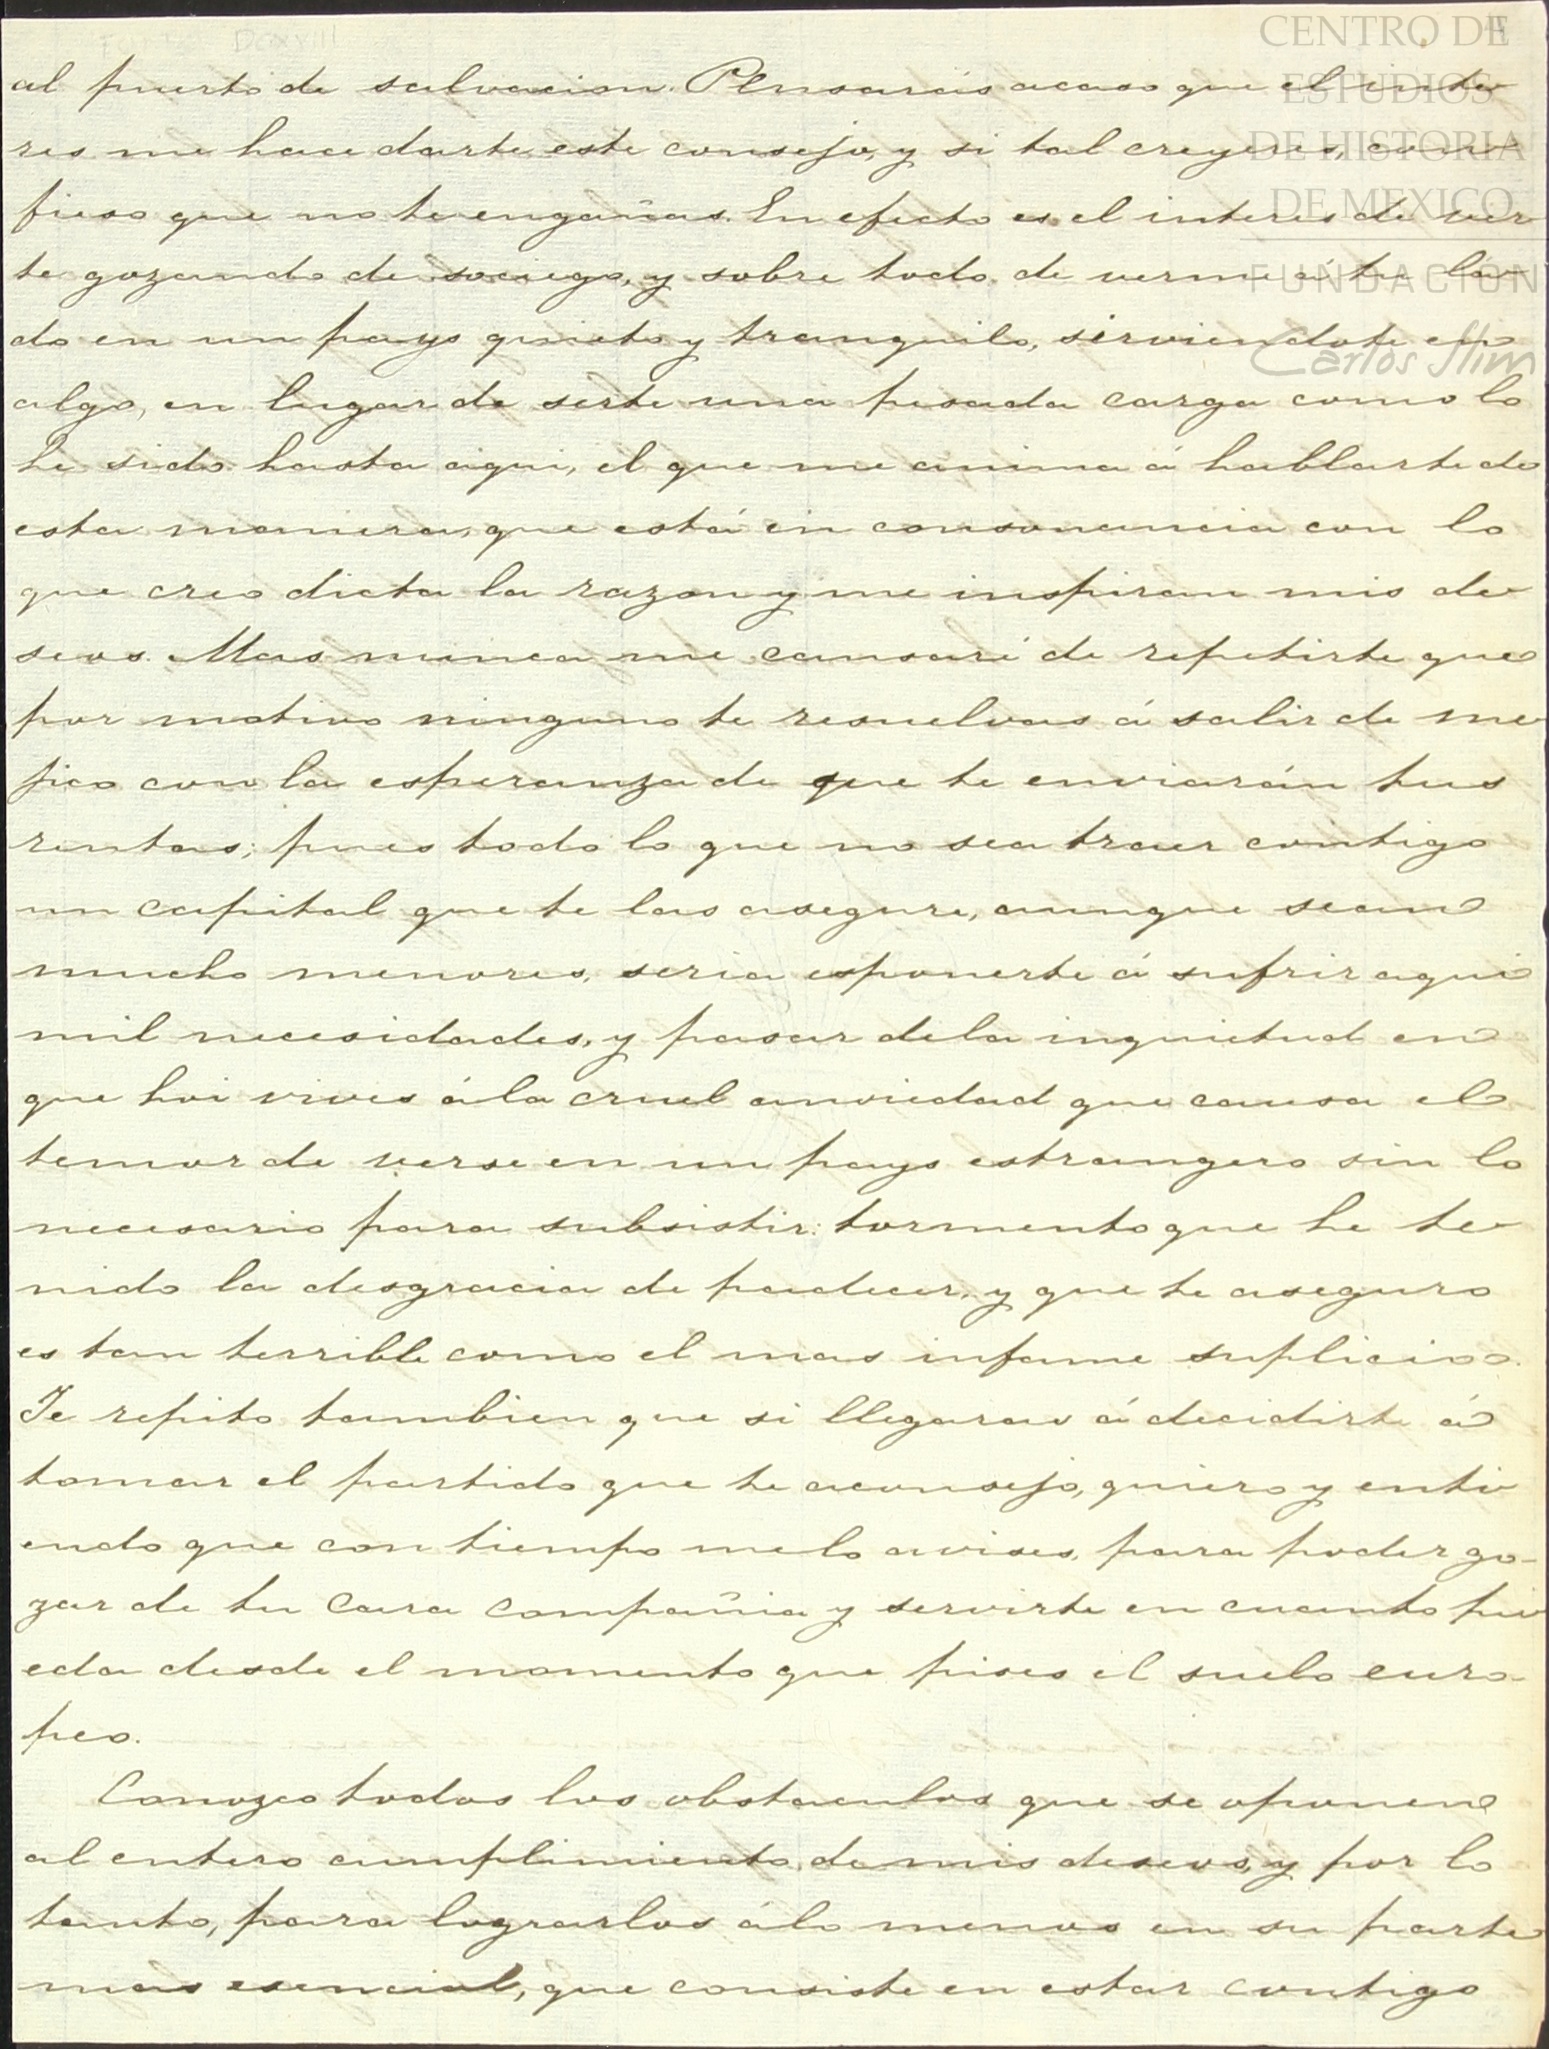 CENTRO DE
ESTUDIOS
DE HISTORIA
DE MEXICO
FUNDACIÓN
Carlos Slim
DCXXIII
al puerto de salvacion. Pensarás acaso que el inte
res me hace darte este consejo, y si tal creyeres, con
fieso que no te engañas. En efecto es el interes de ver
te gozando de sociego, y sobre todo de verme á tu la
do en un pays quieto y tranquilo, sirviendote en
algo, en lugar de serte una pesada carga como lo
he sido hasta aqui, el que me anima á hablarte de
esta manera, que está en consonancia con lo
que creo dicta la razon y me inspiran mis de
seos. Mas nunca me cansaré de repetirte que
por motivo ninguno te resuelvas á salir de me
jico con la esperanza de que te enviarán tus
rentas; pues todo lo que no sea traer contigo
un capital que te las asegure, aunque sean
mucho menores, seria esponerte á sufrir aqui
mil necesidades, y pasar dela inquietud en
que hoi vives ála cruel anciedad que causa el
temor de verse en un pays estrangero sin lo
necesario para subsistir: tormento que he te
nido la desgracia de padecer, y que te aseguro
es tan terrible como el mas infame suplicio.
Te repito tambien que si llegaras á decidirte á
tomar el partido que te aconsejo, quiero y enti
endo que con tiempo melo avises, para poder go-
zar de tu cara compañia y servirte en cuanto pu
eda desde el momento que pises el suelo euro-
peo.
Conozco todos los obstaculos que se oponen
al entero cumplimiento de mis deseos, y por lo
tanto, para lograrlos álo menos en su parte
mas esencial, que consiste en estar contigo